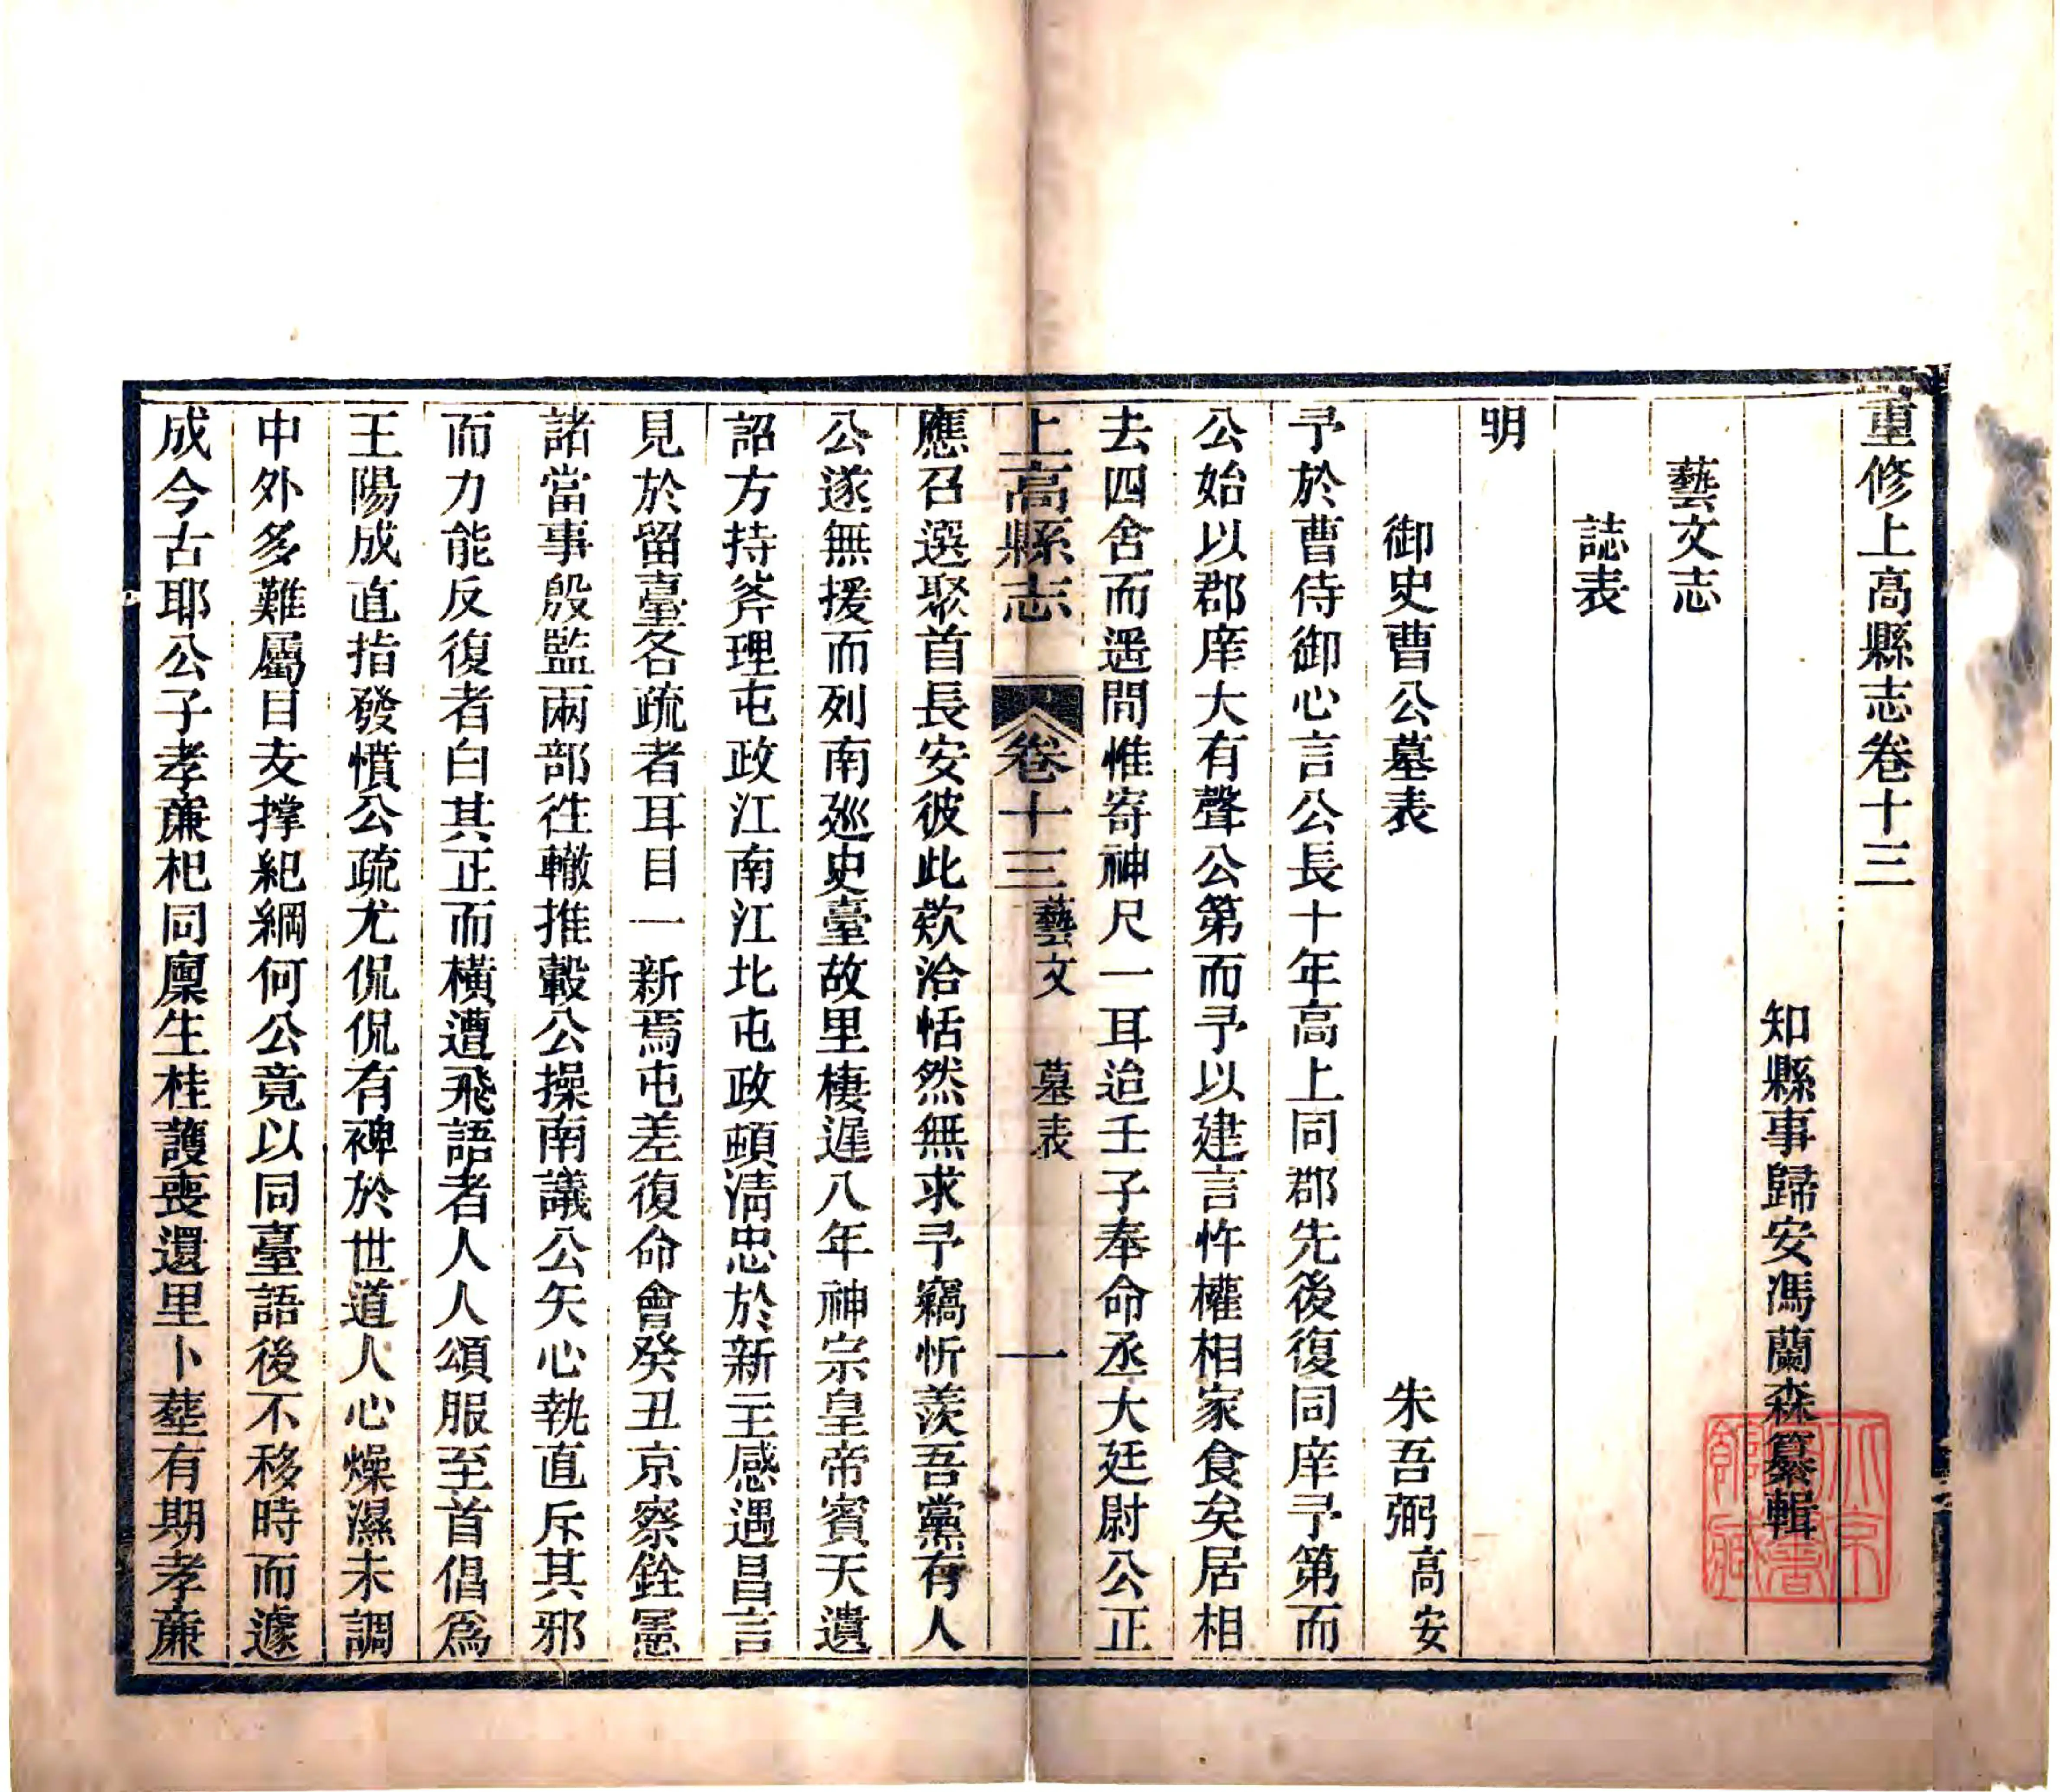 重修上高縣志卷十三
知縣事歸安馮蘭森纂輯
藝文志
誌表
明
御史曹公墓表 朱吾弼高安
予於曹侍御心言公長十年高上同郡先後復同庠予第而
公始以郡庠大有聲公第而予以建言忤權相家食矣居相
去四舍而遥問惟寄神尺一耳迨壬子奉命丞大廷尉公正
上高縣志 卷十三 藝文 墓表 一
應召選聚首長安彼此歡洽恬然無求予竊忻羨吾黨有人
公遂無援而列南廵史臺故里棲遲八年神宗皇帝賓天遺
詔方持斧理屯政江南江北屯政頓清忠於新主感遇昌言
見於留臺各疏者耳目一新焉屯差復命會癸丑京察銓憲
諸當事殷監兩部徃轍推轂公操南議公矢心執直斥其邪
而力能反復者白其正而橫遭飛語者人人頌服至首倡爲
王陽成直指發憤公疏尤侃侃有裨於世道人心燥濕未調
中外多難屬目支撑紀綱何公竟以同臺語後不移時而遽
成今古耶公子孝廉杞同廩生桂護喪還里卜塟有期孝廉
北京圖書館藏